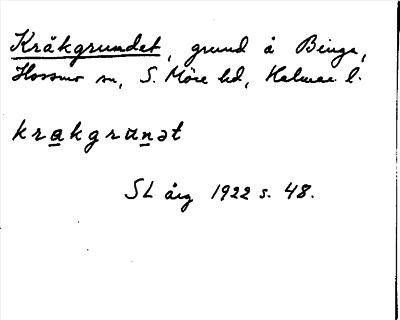 Kråkgrundet, grund å Binga,
Hossmo sn, S. Möre hd, Kalmar l.
krakgrunət
SL årg 1922 s. 48.